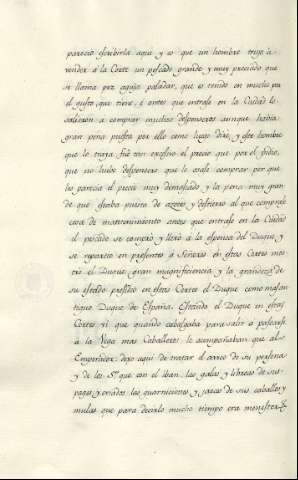 parecio escribirla aqui y es que un hombre trujo à
vender a la Corte un pescado grande y muy preciado que
se llama pez aguja paladar, que es tenido en mucho por
el gusto que tiene, è antes que entrase en la Ciudad lo
salieron a comprar muchos despenseros aunque habia
gran pena puesta por ello como luego diré, y este hombre
que le traya fué tan excesivo el precio que por èl pidio,
que no huvo despensero que le osase comprar por que
les parecia el precio muy demasiado y la pena muy gran
de que estaba puesta de azotes, y destierro al que comprase
cosa de mantenimiento antes que entrase en la Ciudad
el pescado se compró y llevó a la despensa del Duque y
se repartio en presentes a Señores en estas Cortes mos
tró el Duque gran magnificencia y la grandeza de
su estado presidió en estas Cortes el Duque como mas an
tiguo Duque de España. Estando el Duque en estas
Cortes vi que quando cabalgaba para salir a pasearse
à la Vega mas Caballeros le acompañaban que al
Emperador: dejo aqui de tratar el arreo de su persona
y de los S.es que con el iban, las galas y libreas de sus
pages y criados, las guarniciones y jaeces de sus caballos y
mulas que para decirlo mucho tiempo era menester